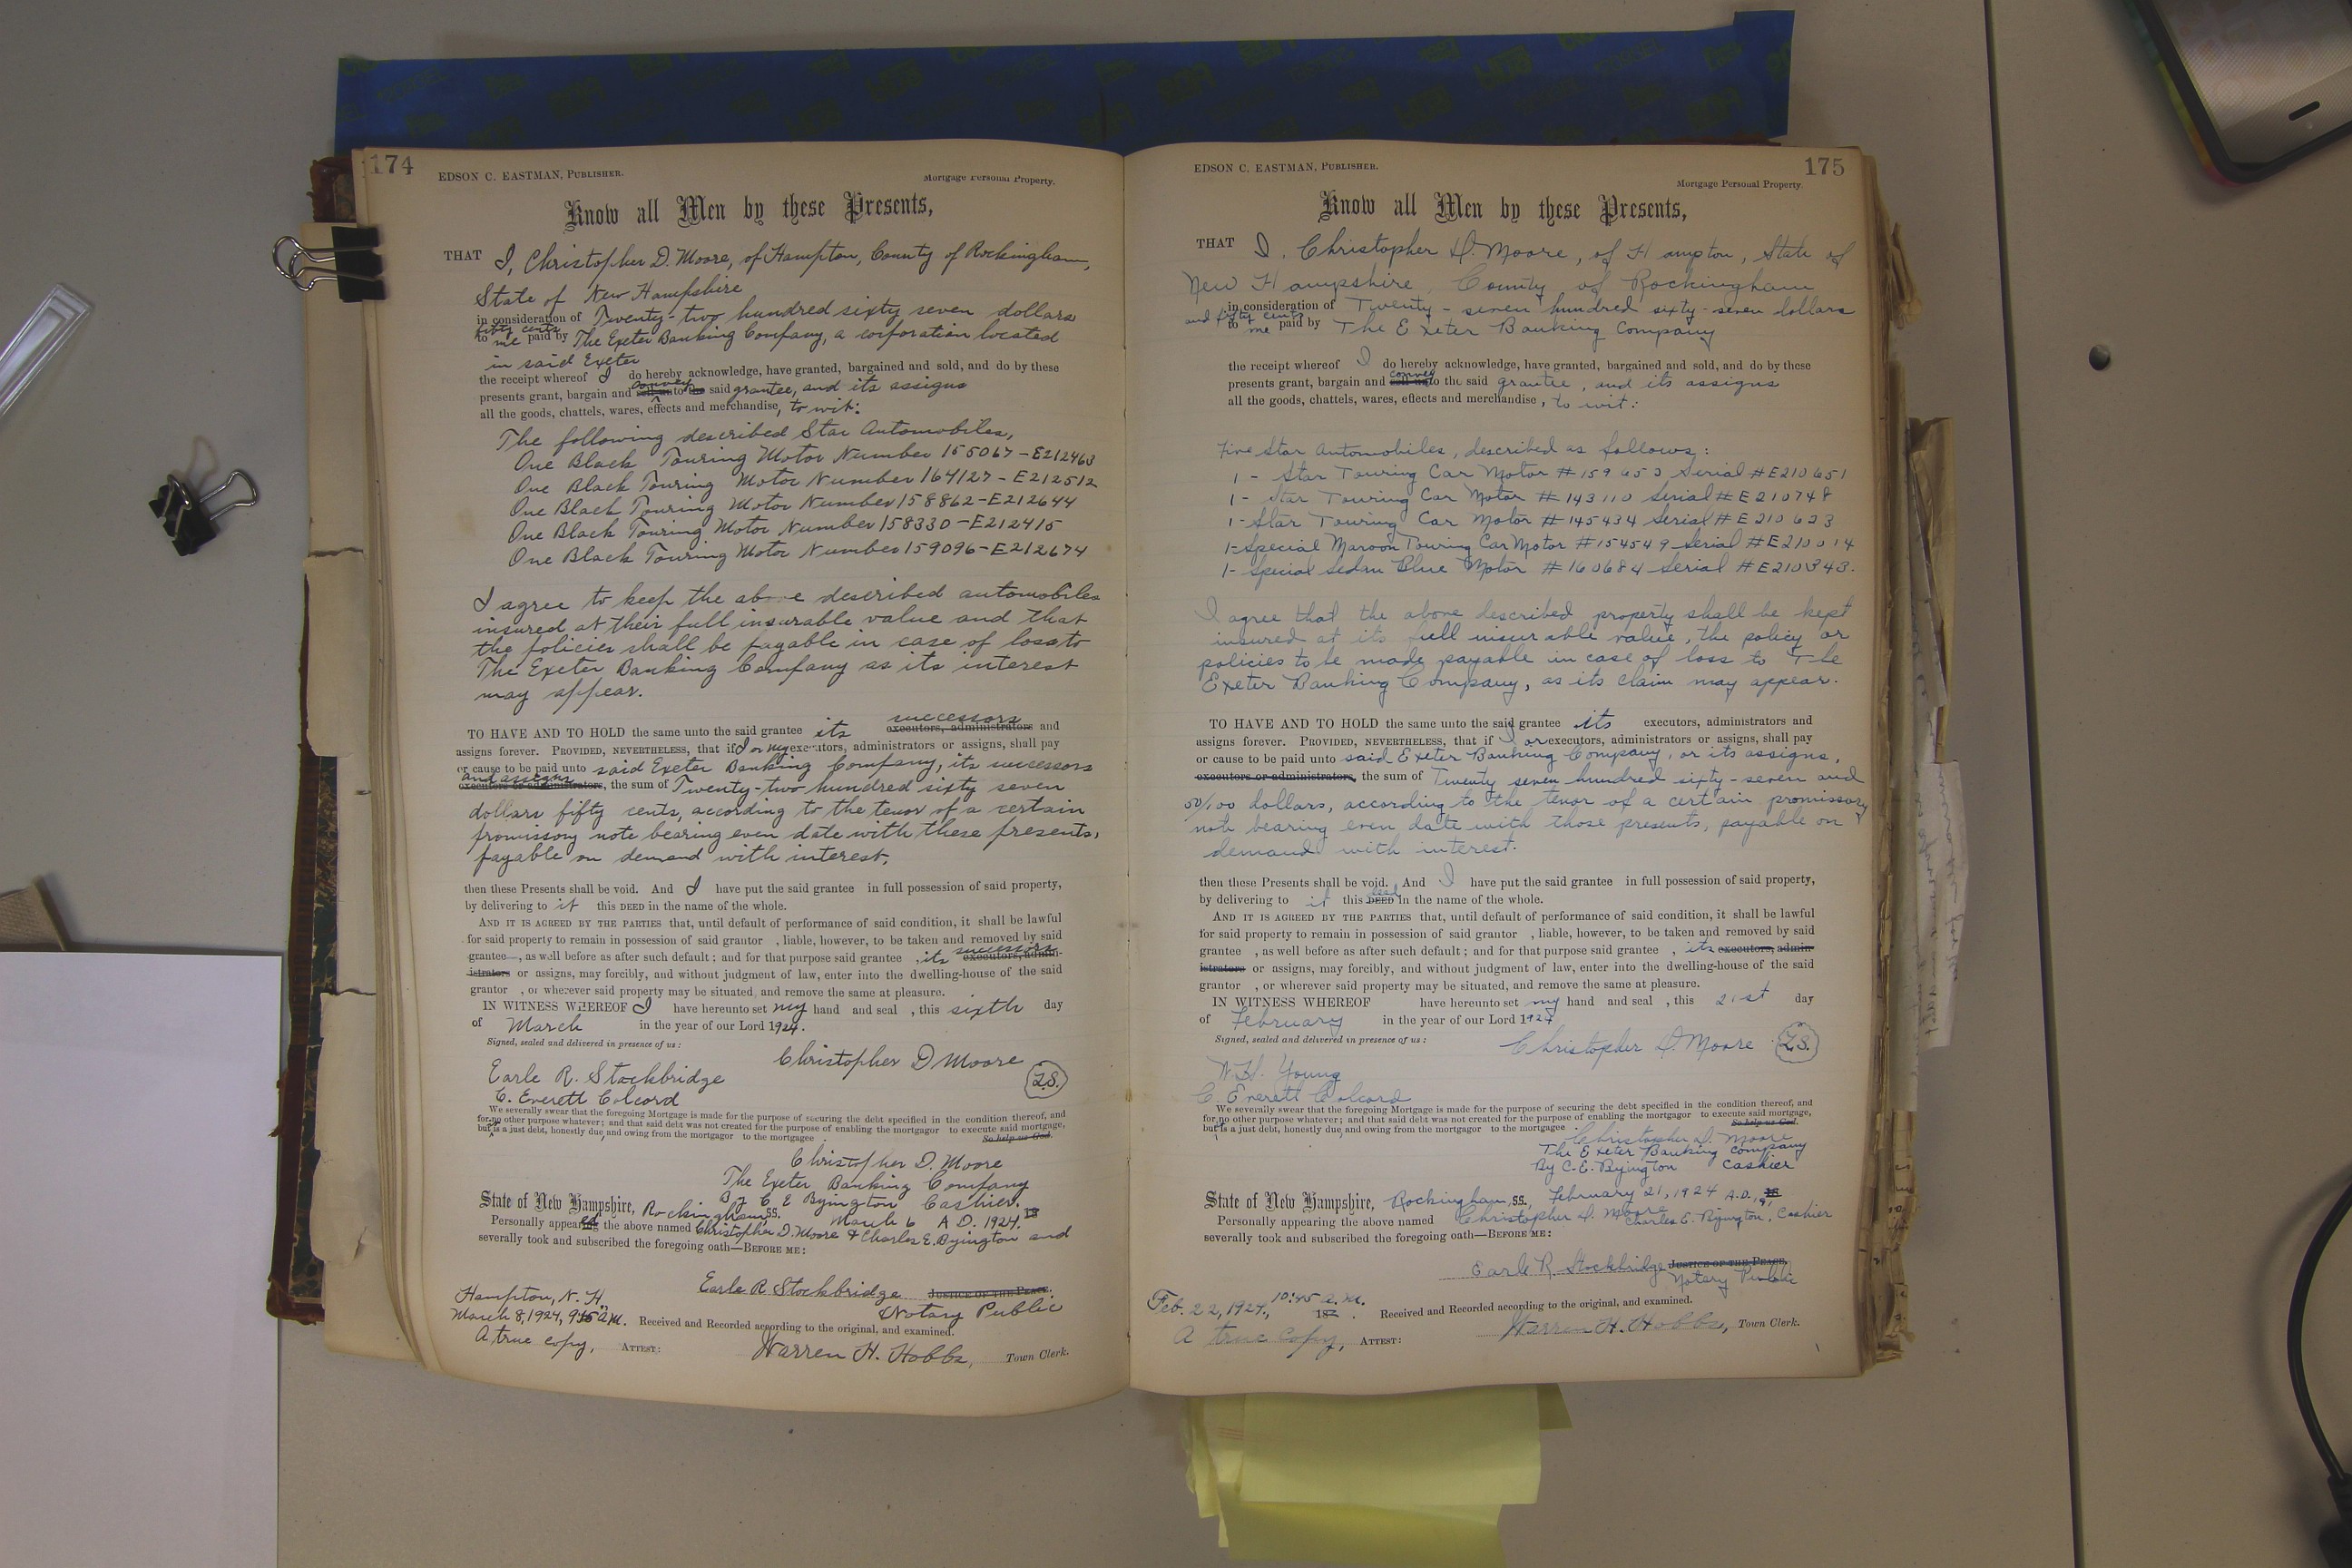 174
EDSON C. EASTMAN, PUBLISHER.
Mortgage Personal Property.
Know all Men by these Presents,
THAT I, Christopher D. Moore, of Hampton, County of Rockingham,
State of New Hampshire
in consideration of Twenty-two hundred sixty seven dollars
fifty cents
to me paid by The Exeter Banking Company, a corporation located
in said Exeter
the receipt whereof I do hereby acknowledge, have granted, bargained and sold, and do by these
convey
presents grant, bargain and sell unto the said grantee, and its assigns
all the goods, chattels, wares, effects and merchandise, to wit:
The following described Star Automobiles,
One Black Touring Motor Number 155067-E212463
One Black Touring Motor Number 164127-E212512
One Black Touring Motor Number 158862-E212644
One Black Touring Motor Number 158330-E212415
One Black Touring Motor Number 159096-E212674
I agree to keep the above described automobiles
insured at their full insurable value and that
the policies shall be payable in case of loss to
The Exeter Banking Company as its interest
may appear.
successors
TO HAVE AND TO HOLD the same unto the said grantee its executors, administrators and
assigns forever. PROVIDED, NEVERTHELESS, that if I or my executors, administrators or assigns, shall pay
or cause to be paid unto said Exeter Banking Company, its successors
and assigns
executors or administrators, the sum of Twenty-two hundred sixty seven
dollars fifty cents, according to the tenor of a certain
promissory note bearing even date with these presents,
payable on demand with interest.
then these Presents shall be void. And I have put the said grantee in full possession of said property,
by delivering to it this DEED in the name of the whole.
AND IT IS AGREED BY THE PARTIES that, until default of performance of said condition, it shall be lawful
for said property to remain in possession of said grantor , liable, however, to be taken and removed by said
successors
grantee , as well before as after such default; and for that purpose said grantee , its executors, admin-
istrators or assigns, may forcibly, and without judgment of law, enter into the dwelling-house of the said
grantor , or wherever said property may be situated, and remove the same at pleasure.
IN WITNESS WHEREOF I have hereunto set my hand and seal , this sixth day
of March in the year of our Lord 1924.
Signed, sealed and delivered in presence of us:
Christopher D Moore
Earle R. Stockbridge
L.S.
C. Everett Colcord
We severally swear that the foregoing Mortgage is made for the purpose of securing the debt specified in the condition thereof, and
for no other purpose whatever; and that said debt was not created for the purpose of enabling the mortgagor to execute said mortgage,
but is a just debt, honestly due and owing from the mortgagor to the mortgagee . So help us God.
Christopher D. Moore
The Exeter Banking Company
By C. E Byington Cashier.
State of New Hampshire, Rockingham SS. March 6 A D. 1924. 18
Personally appeared the above named Christopher D. Moore & Charles E. Byington and
severally took and subscribed the foregoing oath—BEFORE ME:
Earle R Stockbridge JUSTICE OF THE PEACE.
Notary Public
Hampton, N. H.
March 8, 1924, 9 A.M. Received and Recorded according to the original, and examined.
A true copy, ATTEST: Warren H. Hobbs, Town Clerk.
175
EDSON C. EASTMAN, PUBLISHER.
Mortgage Personal Property.
Know all Men by these Presents,
THAT I. Christopher D. Moore, of Hampton, State of
New Hampshire, County of Rockingham
in consideration of Twenty-seven hundred sixty-seven dollars
and fifty cents
to me paid by The Exeter Banking Company
the receipt whereof I do hereby acknowledge, have granted, bargained and sold, and do by these
convey
presents grant, bargain and sell unto the said grantee, and its assigns
all the goods, chattels, wares, effects and merchandise, to wit:
Five Star Automobiles, described as follows:
1- Star Touring Car Motor #159653 Serial #E210651
1- Star Touring Car Motor #143110 Serial #E210748
1- Star Touring Car Motor #145434 Serial #E210623
1-Special Maroon Touring Car Motor #154549 Serial #E210014
1- Special Sedan Blue Motor #160684 Serial #E210343.
I agree that the above described property shall be kept
insured at its full insurable value, the policy or
policies to be made payable in case of loss to The
Exeter Banking Company, as its claim may appear.
TO HAVE AND TO HOLD the same unto the said grantee its executors, administrators and
assigns forever. PROVIDED, NEVERTHELESS, that if I or executors, administrators or assigns, shall pay
or cause to be paid unto said Exeter Banking Company, or its assigns,
executors or administrators, the sum of Twenty seven hundred sixty-seven and
50/100 dollars, according to the tenor of a certain promissory
note bearing even date with those presents, payable on
demand with interest.
then these Presents shall be void. And I have put the said grantee in full possession of said property,
deed
by delivering to it this DEED in the name of the whole.
AND IT IS AGREED BY THE PARTIES that, until default of performance of said condition, it shall be lawful
for said property to remain in possession of said grantor , liable, however, to be taken and removed by said
grantee , as well before as after such default; and for that purpose said grantee , its executors, admin-
istrators or assigns, may forcibly, and without judgment of law, enter into the dwelling-house of the said
grantor , or wherever said property may be situated, and remove the same at pleasure.
IN WITNESS WHEREOF have hereunto set my hand and seal , this 21st day
of February in the year of our Lord 1924
Signed, sealed and delivered in presence of us:
Christopher D. Moore L.S.
W.H. Young
C. Everett Colcord
We severally swear that the foregoing Mortgage is made for the purpose of securing the debt specified in the condition thereof, and
for no other purpose whatever; and that said debt was not created for the purpose of enabling the mortgagor to execute said mortgage,
but is a just debt, honestly due, and owing from the mortgagor to the mortgagee . So help us God.
Christopher D. Moore
The Exeter Banking Company
By C. E. Byington Cashier
State of New Hampshire, Rockingham, SS. February 21, 1924 A.D., 18
Personally appearing the above named Christopher D. Moore Charles E. Byington, Cashier
severally took and subscribed the foregoing oath—BEFORE ME:
Earle R Stockbridge JUSTICE OF THE PEACE.
Notary Public
Feb. 22, 1924, A.M. 18 . Received and Recorded according to the original, and examined.
A true copy, ATTEST: Warren H. Hobbs, Town Clerk.